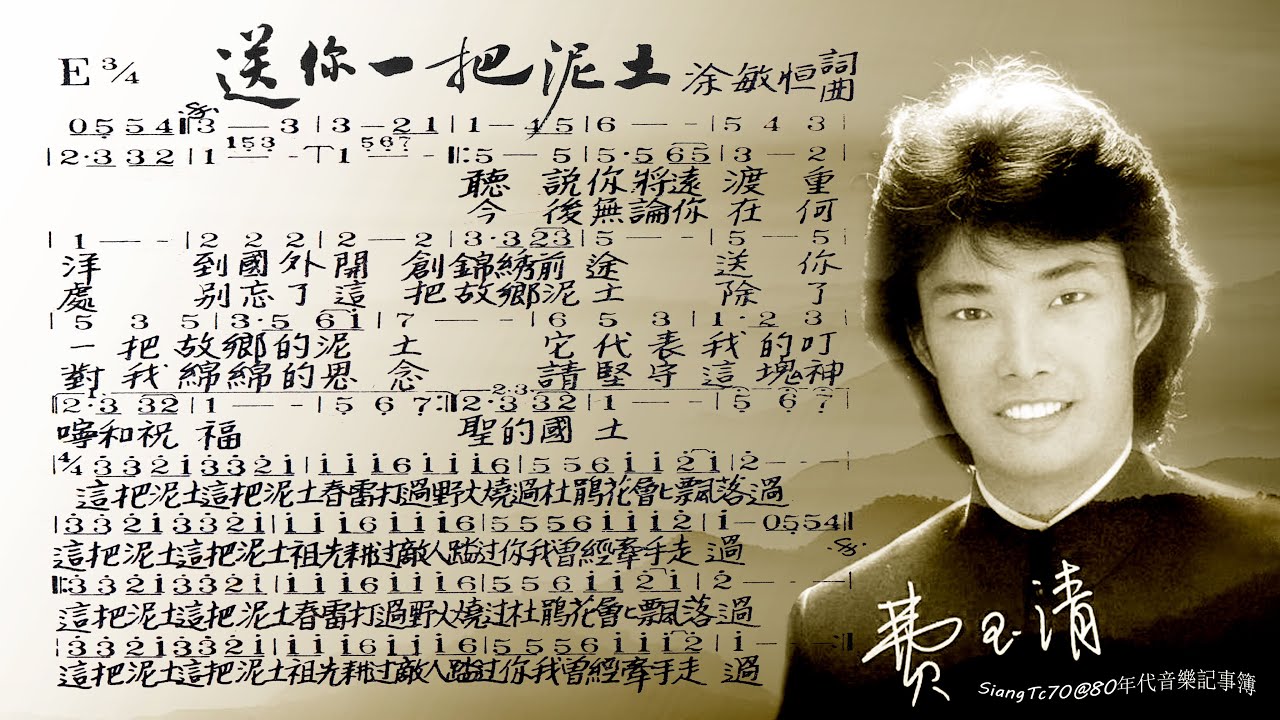 E 3/4 送你一把泥土 涂敏恒 詞曲
0554|3—3|3—21|1—45|6—-|543|
|2·332|1—-|1—-|:5—5|5·565|3—2|
153 567
聽說你將遠渡重
今後無論你在何
|1—-|222|2—2|3·323|5—-|5—5|
洋到國外開創錦綉前途送你
處別忘了這把故鄉泥土除了
|535|3·561|7—-|653|1·23|
一把故鄉的泥土它代表我的叮
對我綿綿的思念請堅守這塊神
1. 2.3.
2·332|1—-|567:|2·332|1—-|567|
嚀和祝福聖的國土
4/4 33213321|11161116|55561121|2—--|
這把泥土這把泥土春雷打過野火燒過杜鵑花層層飄落過
|33213321|11161116|55561112|1—0554|
這把泥土這把泥土祖先耕过敵人踏过你我曾經牽手走過
|:33213321|11161116|55561121|2—--|
這把泥土這把泥土春雷打過野火燒过杜鵑花層層飄落過
|33213321|11161116|55561112|1—-:|
這把泥土這把泥土祖先耕过敵人踏过你我曾經牽手走過
費玉清
SiangTc70@80年代音樂記事簿